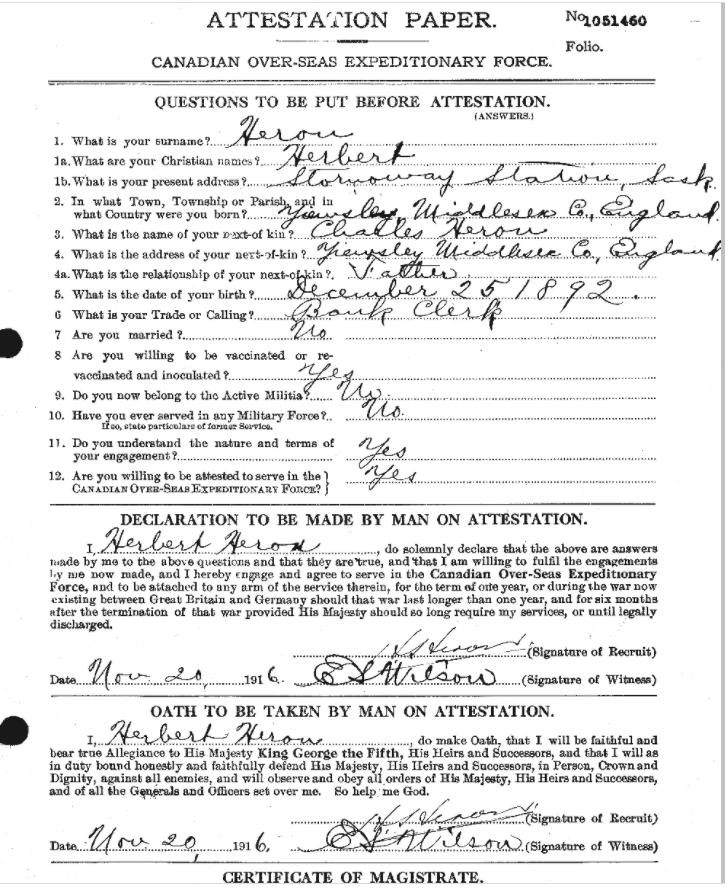 ATTESTATION PAPER.
No 1051460
Folio.
CANADIAN OVER-SEAS EXPEDITIONARY FORCE.
QUESTIONS TO BE PUT BEFORE ATTESTATION.
(ANSWERS.)
1. What is your surname? Heron
1a. What are your Christian names? Herbert
1b. What is your present address? Stornoway Station, Sask.
2. In what Town, Township or Parish, and in
what Country were you born? Yewsley, Middlesex Co., England.
3. What is the name of your next-of kin? Charles Heron
4. What is the address of your next-of-kin? Yewsley Middlesex Co., England.
4a. What is the relationship of your next-of-kin? Father
5. What is the date of your birth? December 25 1892.
6 What is your Trade or Calling? Bank Clerk
7 Are you married? No
8 Are you willing to be vaccinated or re-
vaccinated and inoculated? Yes
9. Do you now belong to the Active Militia? No
10. Have you ever served in any Military Force? No.
If so, state particulars of former Service.
11. Do you understand the nature and terms of
your engagement? Yes
12. Are you willing to be attested to serve in the
CANADIAN OVER-SEAS EXPEDITIONARY FORCE? Yes
DECLARATION TO BE MADE BY MAN ON ATTESTATION.
I, Herbert Heron, do solemnly declare that the above are answers
made by me to the above questions and that they are true, and that I am willing to fulfil the engagements
by me now made, and I hereby engage and agree to serve in the Canadian Over-Seas Expeditionary
Force, and to be attached to any arm of the service therein, for the term of one year, or during the war now
existing between Great Britain and Germany should that war last longer than one year, and for six months
after the termination of that war provided His Majesty should so long require my services, or until legally
discharged.
H Heron (Signature of Recruit)
Date Nov 20, 1916. E S Wilson (Signature of Witness)
OATH TO BE TAKEN BY MAN ON ATTESTATION.
I, Herbert Heron, do make Oath, that I will be faithful and
bear true Allegiance to His Majesty King George the Fifth, His Heirs and Successors, and that I will as
in duty bound honestly and faithfully defend His Majesty, His Heirs and Successors, in Person, Crown and
Dignity, against all enemies, and will observe and obey all orders of His Majesty, His Heirs and Successors,
and of all the Generals and Officers set over me. So help me God.
H Heron (Signature of Recruit)
Date Nov 20, 1916. E S Wilson (Signature of Witness)
CERTIFICATE OF MAGISTRATE.